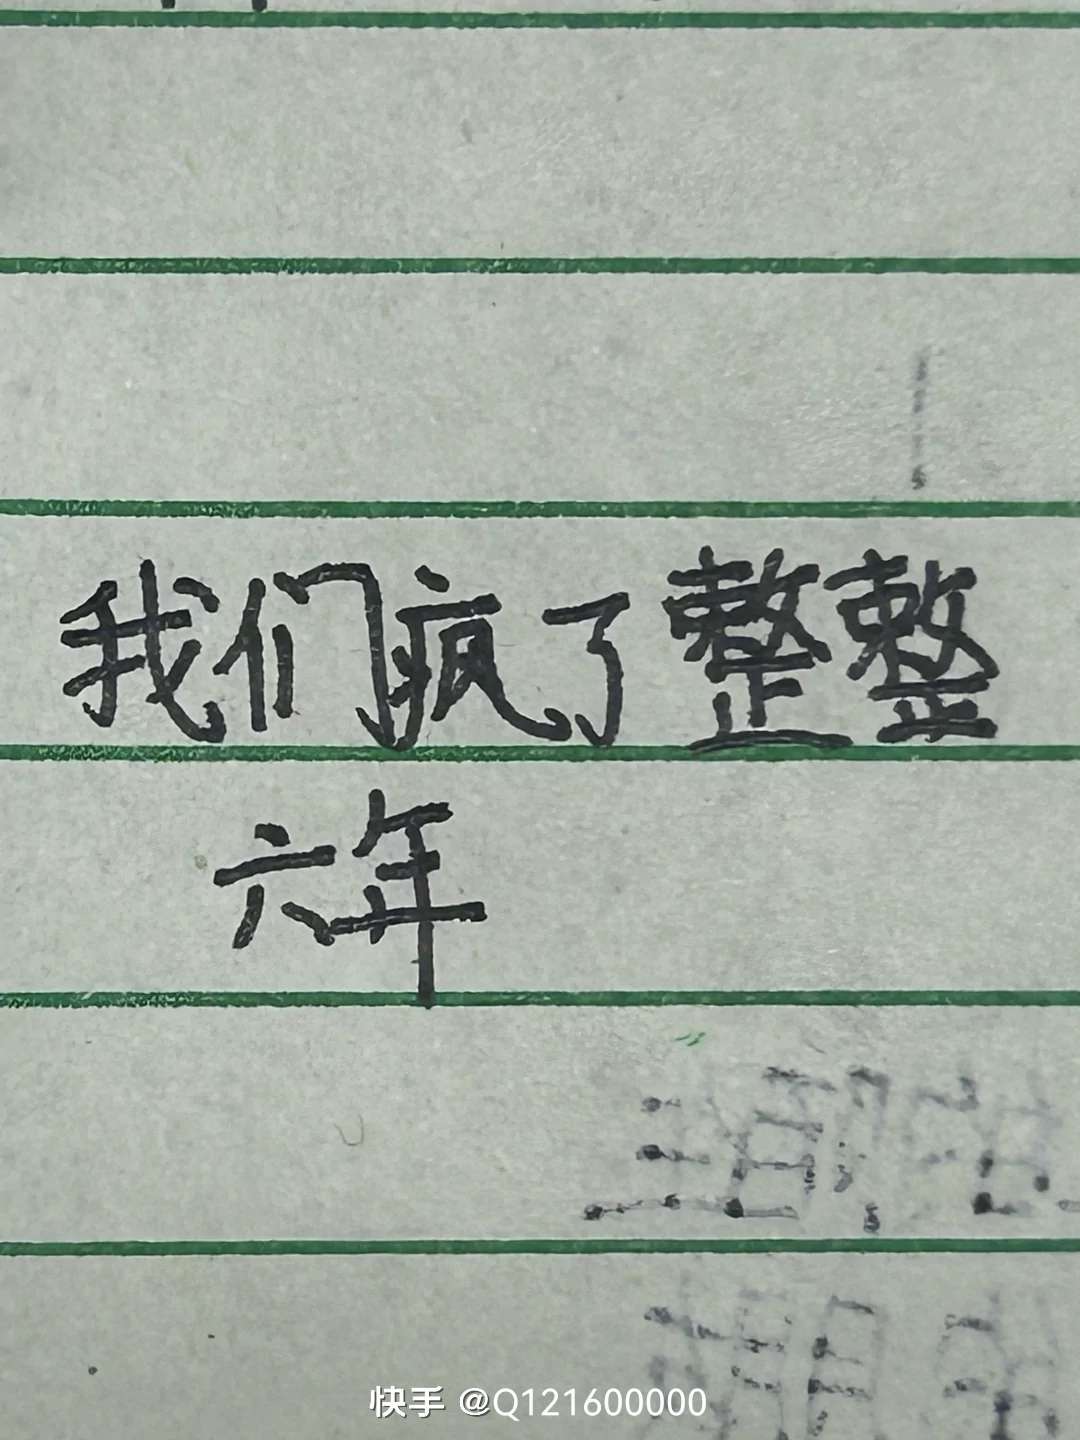 我们疯了整整
六年
快手 @Q121600000